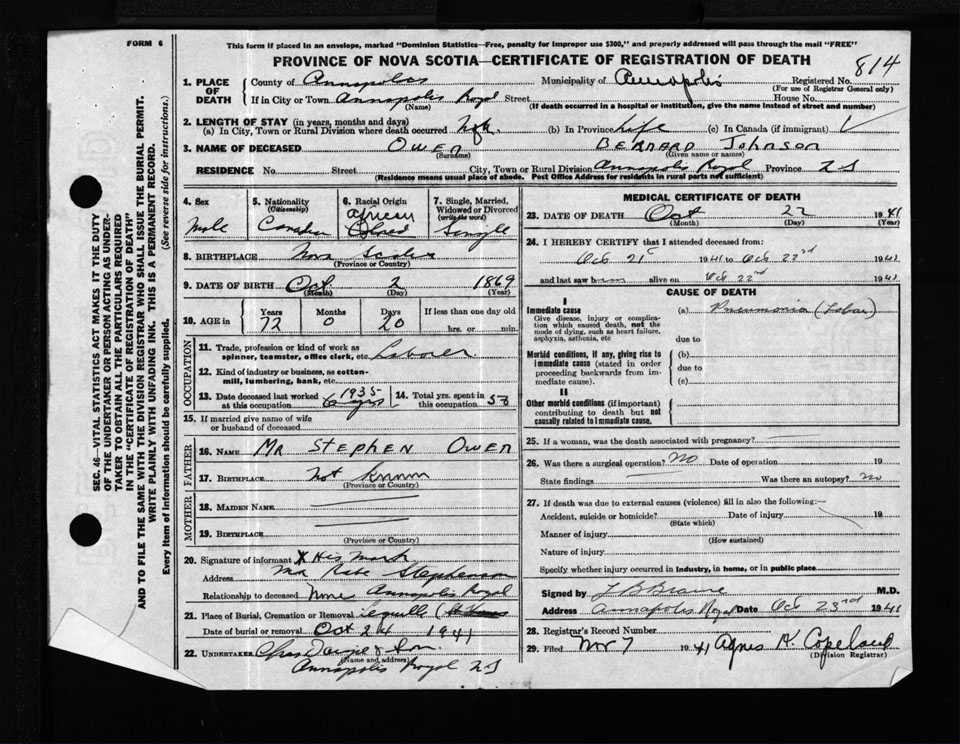 FORM 6
This form if placed in an envelope, marked "Dominion Statistics—Free, penalty for improper use $300," and properly addressed will pass through the mail "FREE"
PROVINCE OF NOVA SCOTIA—CERTIFICATE OF REGISTRATION OF DEATH
814
1. PLACE OF DEATH
County of Annapolis Municipality of Annapolis Registered No.
(For use of Registrar General only)
If in City or Town Annapolis Royal Street House No.
(Name) (If death occurred in a hospital or institution, give the name instead of street and number)
2. LENGTH OF STAY (in years, months and days)
(a) In City, Town or Rural Division where death occurred (b) In Province Life (c) In Canada (if immigrant)
3. NAME OF DECEASED OWEN BERNARD Johnson
(Surname) (Given name or names)
RESIDENCE No. Street City, Town or Rural Division Annapolis Royal Province NS
(Residence means usual place of abode. Post Office Address for residents in rural parts not sufficient)
4. Sex
Male
5. Nationality
(Citizenship)
Canadian
6. Racial Origin
African
7. Single, Married, Widowed or Divorced
(write the word)
Single
8. BIRTHPLACE Nova Scotia
(Province or Country)
9. DATE OF BIRTH Oct 2 1869
(Month) (Day) (Year)
10. AGE in
Years Months Days If less than one day old
72 0 20 hrs. or min.
OCCUPATION
11. Trade, profession or kind of work as spinner, teamster, office clerk, etc. Laborer
12. Kind of industry or business, as cotton-mill, lumbering, bank, etc.
13. Date deceased last worked at this occupation 1935 6 yrs
14. Total yrs. spent in this occupation 50
15. If married give name of wife or husband of deceased
FATHER
16. NAME MR STEPHEN OWEN
17. BIRTHPLACE Not Known
(Province or Country)
MOTHER
18. MAIDEN NAME
19. BIRTHPLACE
(Province or Country)
20. Signature of informant X His Mark
Address
Relationship to deceased None Annapolis Royal
21. Place of Burial, Cremation or Removal Lequille
Date of burial or removal Oct 24 1941
22. UNDERTAKER
(Name and address)
Annapolis Royal NS
MEDICAL CERTIFICATE OF DEATH
23. DATE OF DEATH Oct 22 1941
(Month) (Day) (Year)
24. I HEREBY CERTIFY that I attended deceased from:
Oct 21 1941 to Oct 22nd 1941
and last saw him alive on Oct 22nd 1941
CAUSE OF DEATH
I
Immediate cause
Give disease, injury or complication which caused death, not the mode of dying, such as heart failure, asphyxia, asthenia, etc.
(a) Pneumonia (Lobar)
due to
Morbid conditions, if any, giving rise to immediate cause (stated in order proceeding backwards from immediate cause).
(b)
due to
(c)
II
Other morbid conditions (if important) contributing to death but not causally related to immediate cause.
25. If a woman, was the death associated with pregnancy?
26. Was there a surgical operation? No Date of operation 19
State findings Was there an autopsy? no
27. If death was due to external causes (violence) fill in also the following:—
Accident, suicide or homicide? Date of injury 19
(State which)
Manner of injury
(How sustained)
Nature of injury
Specify whether injury occurred in industry, in home, or in public place
Signed by M.D.
Address Annapolis Royal Date Oct 23rd 1941
28. Registrar's Record Number
29. Filed Nov 7 1941 Agnes Copeland
(Division Registrar)
SEC. 46—VITAL STATISTICS ACT MAKES IT THE DUTY
OF THE UNDERTAKER OR PERSON ACTING AS UNDER-
TAKER TO OBTAIN ALL THE PARTICULARS REQUIRED
IN THE "CERTIFICATE OF REGISTRATION OF DEATH"
AND TO FILE THE SAME WITH THE DIVISION REGISTRAR WHO SHALL ISSUE THE BURIAL PERMIT.
WRITE PLAINLY WITH UNFADING INK. THIS IS A PERMANENT RECORD.
Every item of information should be carefully supplied. (See reverse side for instructions.)